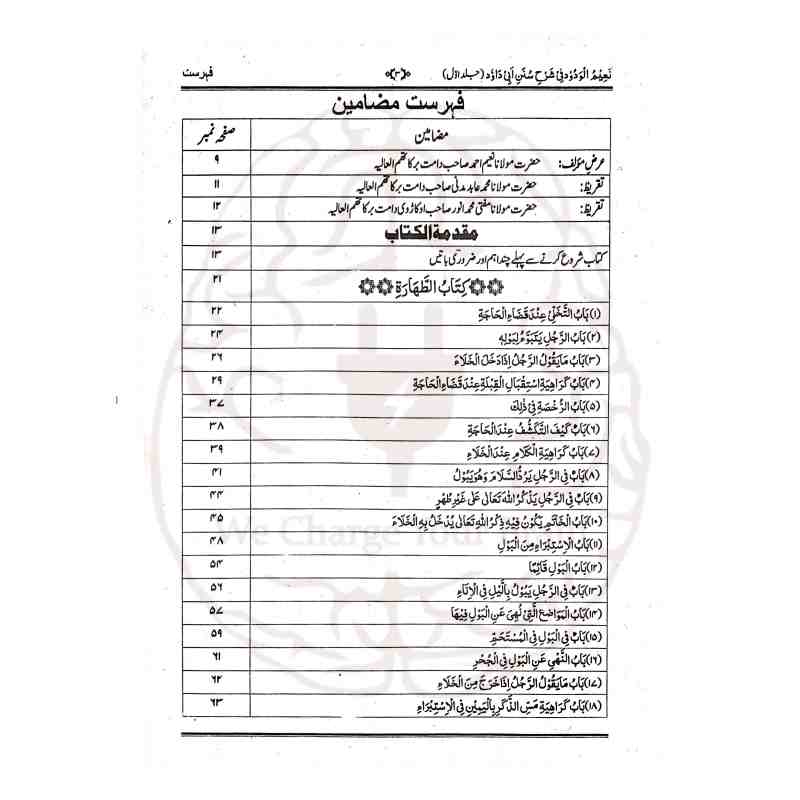 نَعِیْمُ الْوَدُوْد فِیْ شَرْحِ سُنَنِ اَبِیْ دَاوٗد (جلد اوّل) ﴿۳﴾ فہرست
فہرست مضامین
مضامین صفحہ نمبر
عرض مؤلف: حضرت مولانا نعیم احمد صاحب دامت برکاتهم العالیہ ۹
تقریظ: حضرت مولانا محمد عابد مدنی صاحب دامت برکاتهم العالیہ ۱۱
تقریظ: حضرت مولانا مفتی محمد انور صاحب اوکاڑوی دامت برکاتهم العالیہ ۱۲
مقدمة الکتاب ۱۳
کتاب شروع کرنے سے پہلے چند اہم اور ضروری باتیں ۱۳
کِتَابُ الطَّهَارَةِ ۲۱
(۱) بَابُ التَّخَلِّیْ عِنْدَ قَضَاءِ الْحَاجَةِ ۲۲
(۲) بَابُ الرَّجُلِ یَتَبَوَّءُ لِبَوْلِهٖ ۲۴
(۳) بَابُ مَا یَقُوْلُ الرَّجُلُ اِذَا دَخَلَ الْخَلَاءَ ۲۶
(۴) بَابُ کَرَاهِیَةِ اسْتِقْبَالِ الْقِبْلَةِ عِنْدَ قَضَاءِ الْحَاجَةِ ۲۹
(۵) بَابُ الرُّخْصَةِ فِیْ ذٰلِكَ ۳۷
(۶) بَابُ کَیْفَ التَّکَشُّفُ عِنْدَ الْحَاجَةِ ۳۸
(۷) بَابُ کَرَاهِیَةِ الْکَلَامِ عِنْدَ الْخَلَاءِ ۳۹
(۸) بَابٌ فِی الرَّجُلِ یَرُدُّ السَّلَامَ وَهُوَ یَبُوْلُ ۴۱
(۹) بَابٌ فِی الرَّجُلِ یَذْکُرُ اللهَ تَعَالٰی عَلٰی غَیْرِ طُهْرٍ ۴۴
(۱۰) بَابُ الْخَاتَمِ یَکُوْنُ فِیْهِ ذِکْرُ اللهِ تَعَالٰی یُدْخَلُ بِهِ الْخَلَاءَ ۴۵
(۱۱) بَابُ الْاِسْتِبْرَاءِ مِنَ الْبَوْلِ ۴۸
(۱۲) بَابُ الْبَوْلِ قَائِمًا ۵۴
(۱۳) بَابٌ فِی الرَّجُلِ یَبُوْلُ بِاللَّیْلِ فِی الْاِنَاءِ ۵۶
(۱۴) بَابُ الْمَوَاضِعِ الَّتِیْ نُهِیَ عَنِ الْبَوْلِ فِیْهَا ۵۷
(۱۵) بَابٌ فِی الْبَوْلِ فِی الْمُسْتَحَمِّ ۵۹
(۱۶) بَابُ النَّهْیِ عَنِ الْبَوْلِ فِی الْجُحْرِ ۶۱
(۱۷) بَابُ مَا یَقُوْلُ الرَّجُلُ اِذَا خَرَجَ مِنَ الْخَلَاءِ ۶۲
(۱۸) بَابُ کَرَاهِیَةِ مَسِّ الذَّکَرِ بِالْیَمِیْنِ فِی الْاِسْتِبْرَاءِ ۶۳
We Charge Your